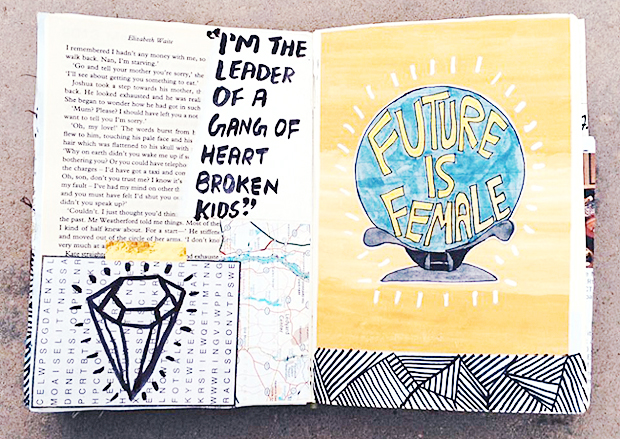 Elizabeth Waite
I remembered I hadn't any money with me, so
walk back. Nan, I'm starving.'
'Go and tell your mother you're sorry,' she
'I'll see about getting you something to eat.'
Joshua took a step towards his mother,
back. He looked exhausted and he was
She began to wonder how he had got in such
'Mum? Please! I should have left you a
want to tell you I'm sorry.'
'Oh, my love!' The words burst from
flew to him, touching his pale face and his
hair which was flattened to his skull with
'Why on earth didn't you wake me up if
bothering you? Or you could have
the charges – I'd have got a taxi and
Oh, son, don't you trust me? I know it's
my fault – I've had my mind on other
and you must have felt I'd shut you
didn't you speak up?'
'Couldn't. I just thought you'd
the past. Mr Weatherford told me things. Most of the
I kind of half knew about. For a start—' He
and moved out of the circle of her arms. 'I don't
very much at
Kate
"I'M THE
LEADER
OF A
GANG OF
HEART
BROKEN
KIDS"
FUTURE
IS
FEMALE